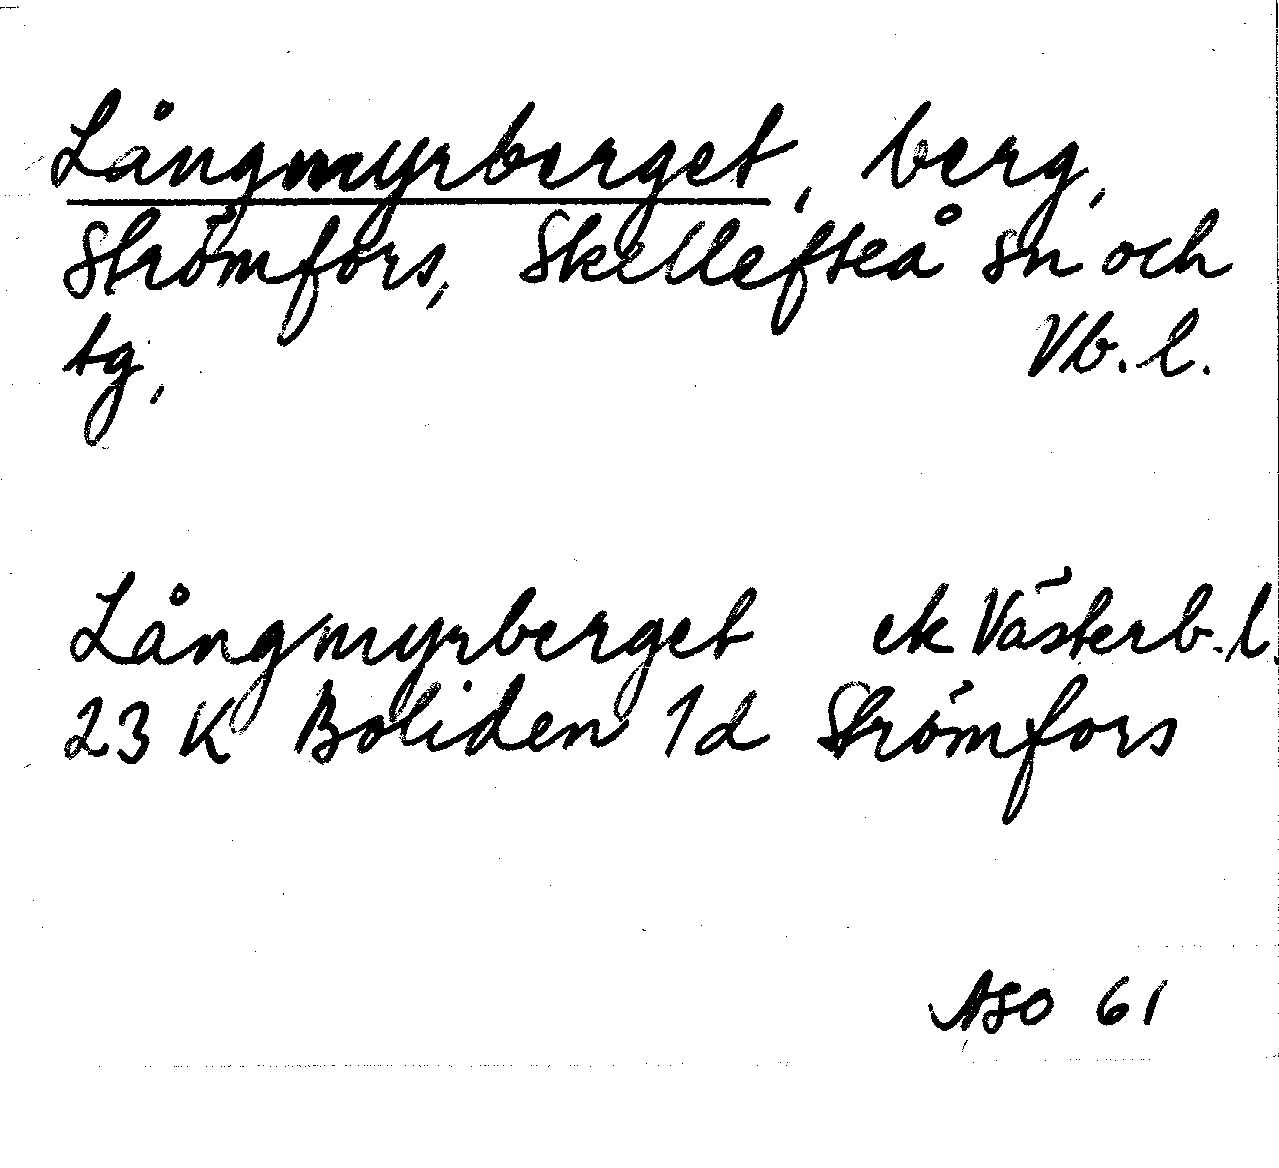 Långmyrberget, berg,
Strömfors, Skellefteå sn och
tg, Vb. l.
Långmyrberget ek Västerb. l.
23 K Boliden 1d Strömfors
ASO 61